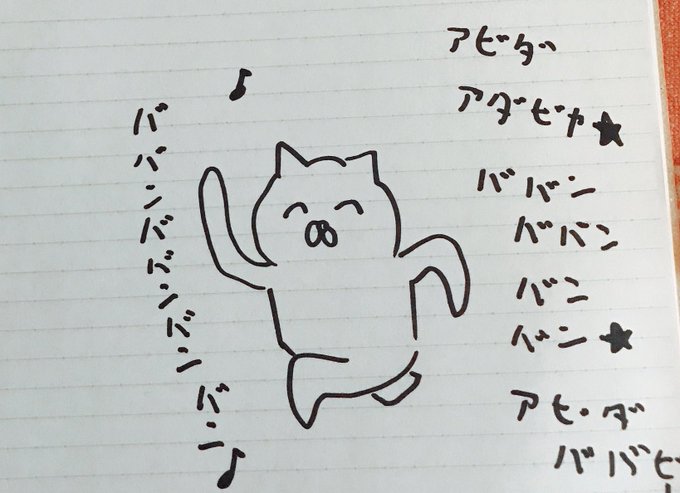 アビダ
アダビヤ★
ババン
ババン
バン
バン★
アビダ
ババビ
♪
ババンババンバンバン♪